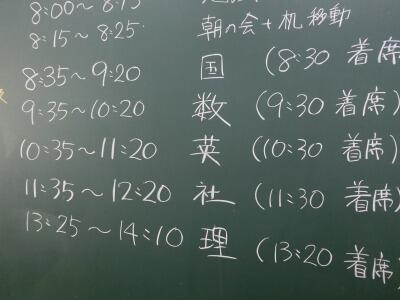 8:00～8:15
8:15～8:25 朝の会+机移動
8:35～9:20 国 (8:30 着席
9:35～10:20 数 (9:30 着席)
10:35～11:20 英 (10:30 着席)
11:35～12:20 社 (11:30 着席)
13:25～14:10 理 (13:20 着席)